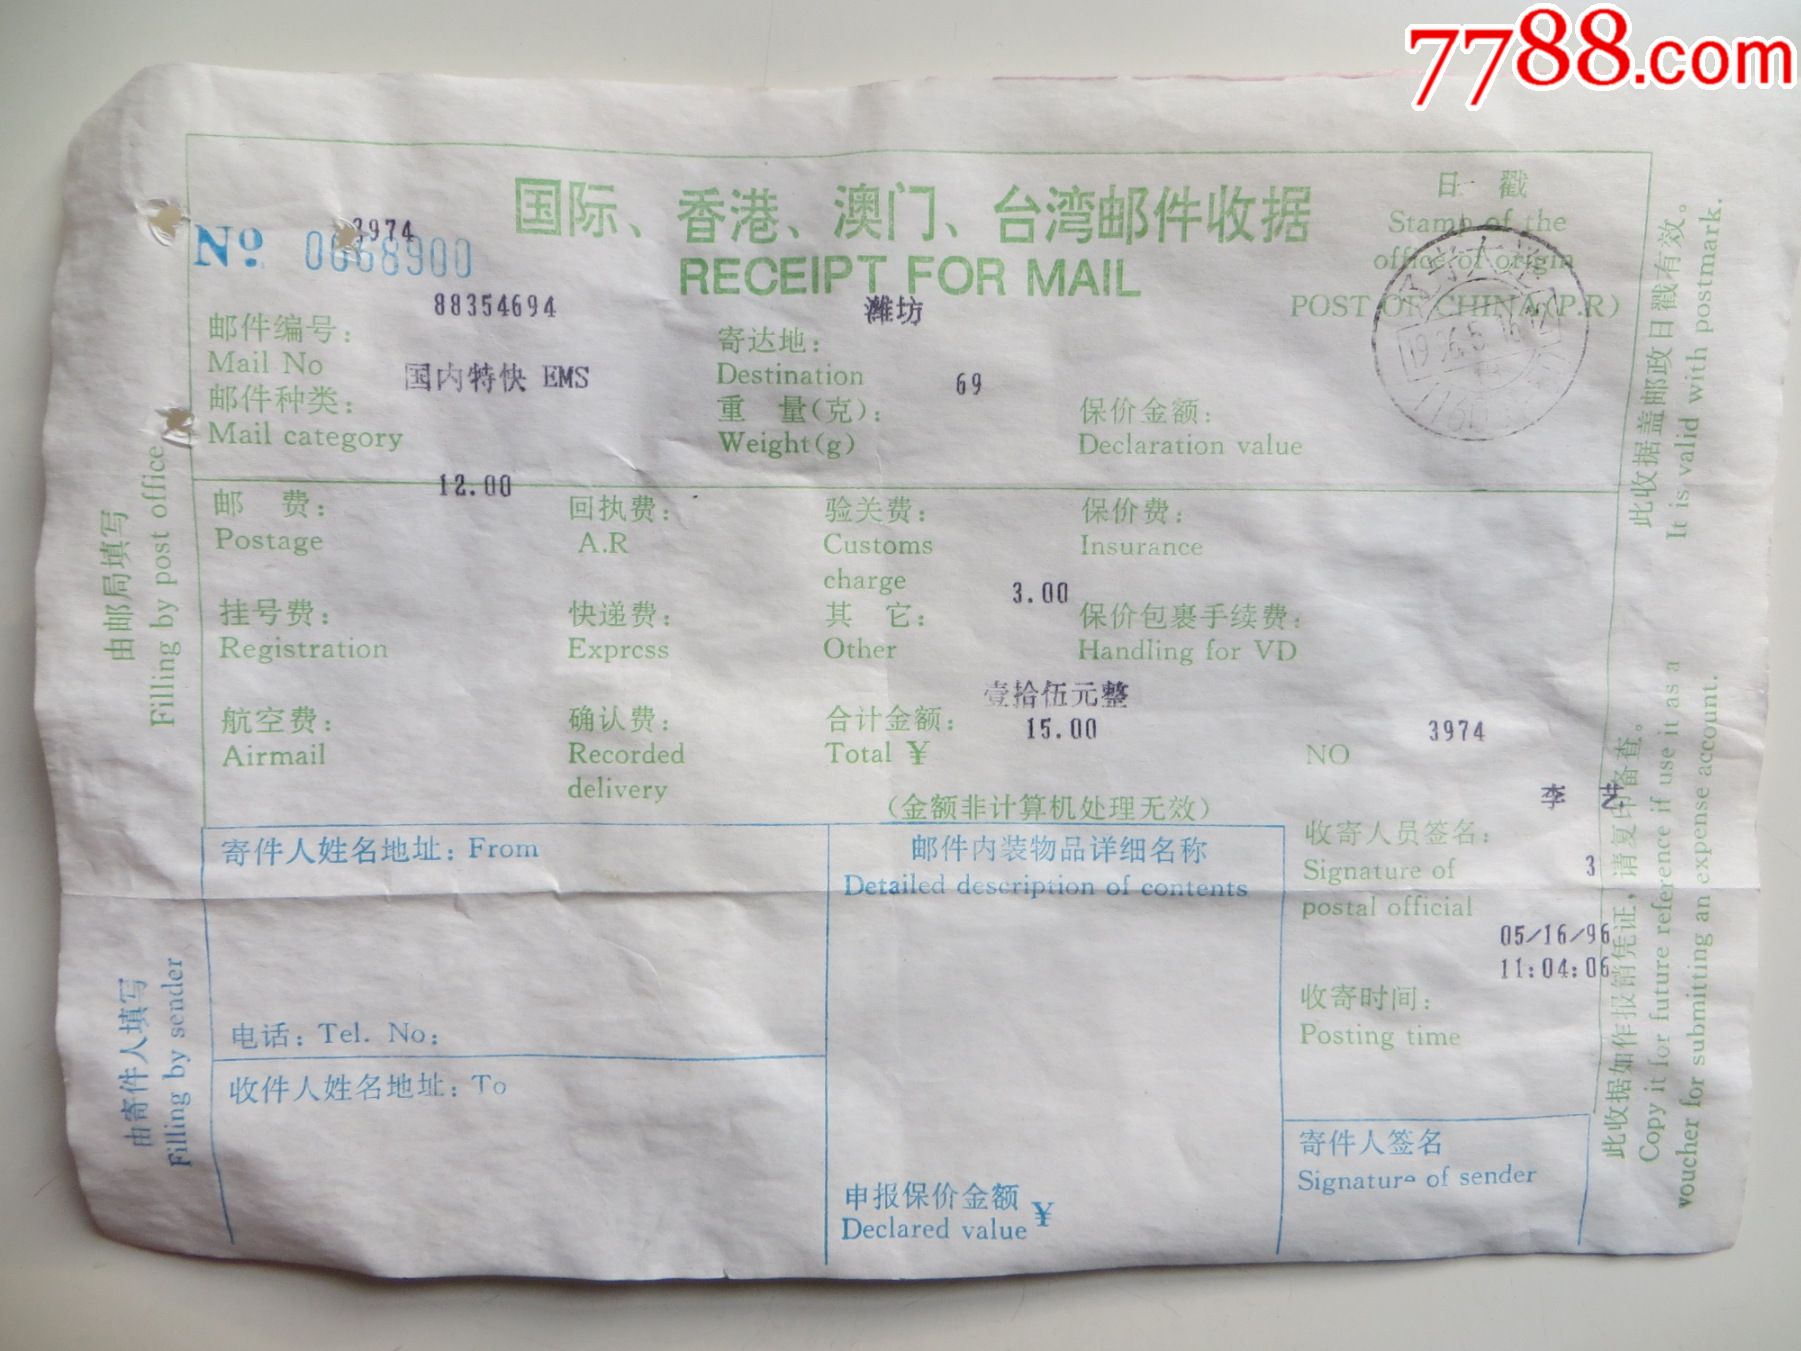 7788.com
国际、香港、澳门、台湾邮件收据
RECEIPT FOR MAIL
日 戳
Stamp of the
office of origin
POST OF CHINA(P.R)
3974
Nº 0668900
邮件编号: 88354694
Mail No
寄达地: 潍坊
Destination
邮件种类: 国内特快 EMS
Mail category
重 量(克): 69
Weight(g)
保价金额:
Declaration value
邮 费: 12.00
Postage
回执费:
A.R
验关费:
Customs
charge
保价费:
Insurance
挂号费:
Registration
快递费:
Express
其 它: 3.00
Other
保价包裹手续费:
Handling for VD
航空费:
Airmail
确认费:
Recorded
delivery
壹拾伍元整
合计金额: 15.00
Total ¥
NO 3974
(金额非计算机处理无效)
李 艺
收寄人员签名:
Signature of 3
postal official
05/16/96
11:04:06
收寄时间:
Posting time
寄件人姓名地址: From
电话: Tel. No:
收件人姓名地址: To
邮件内装物品详细名称
Detailed description of contents
申报保价金额 ¥
Declared value
寄件人签名
Signature of sender
由邮局填写
Filling by post office
由寄件人填写
Filling by sender
此收据盖邮政日戳有效。
It is valid with postmark.
此收据如作报销凭证，请复印备查。
Copy it for future reference if use it as a
voucher for submitting an expense account.